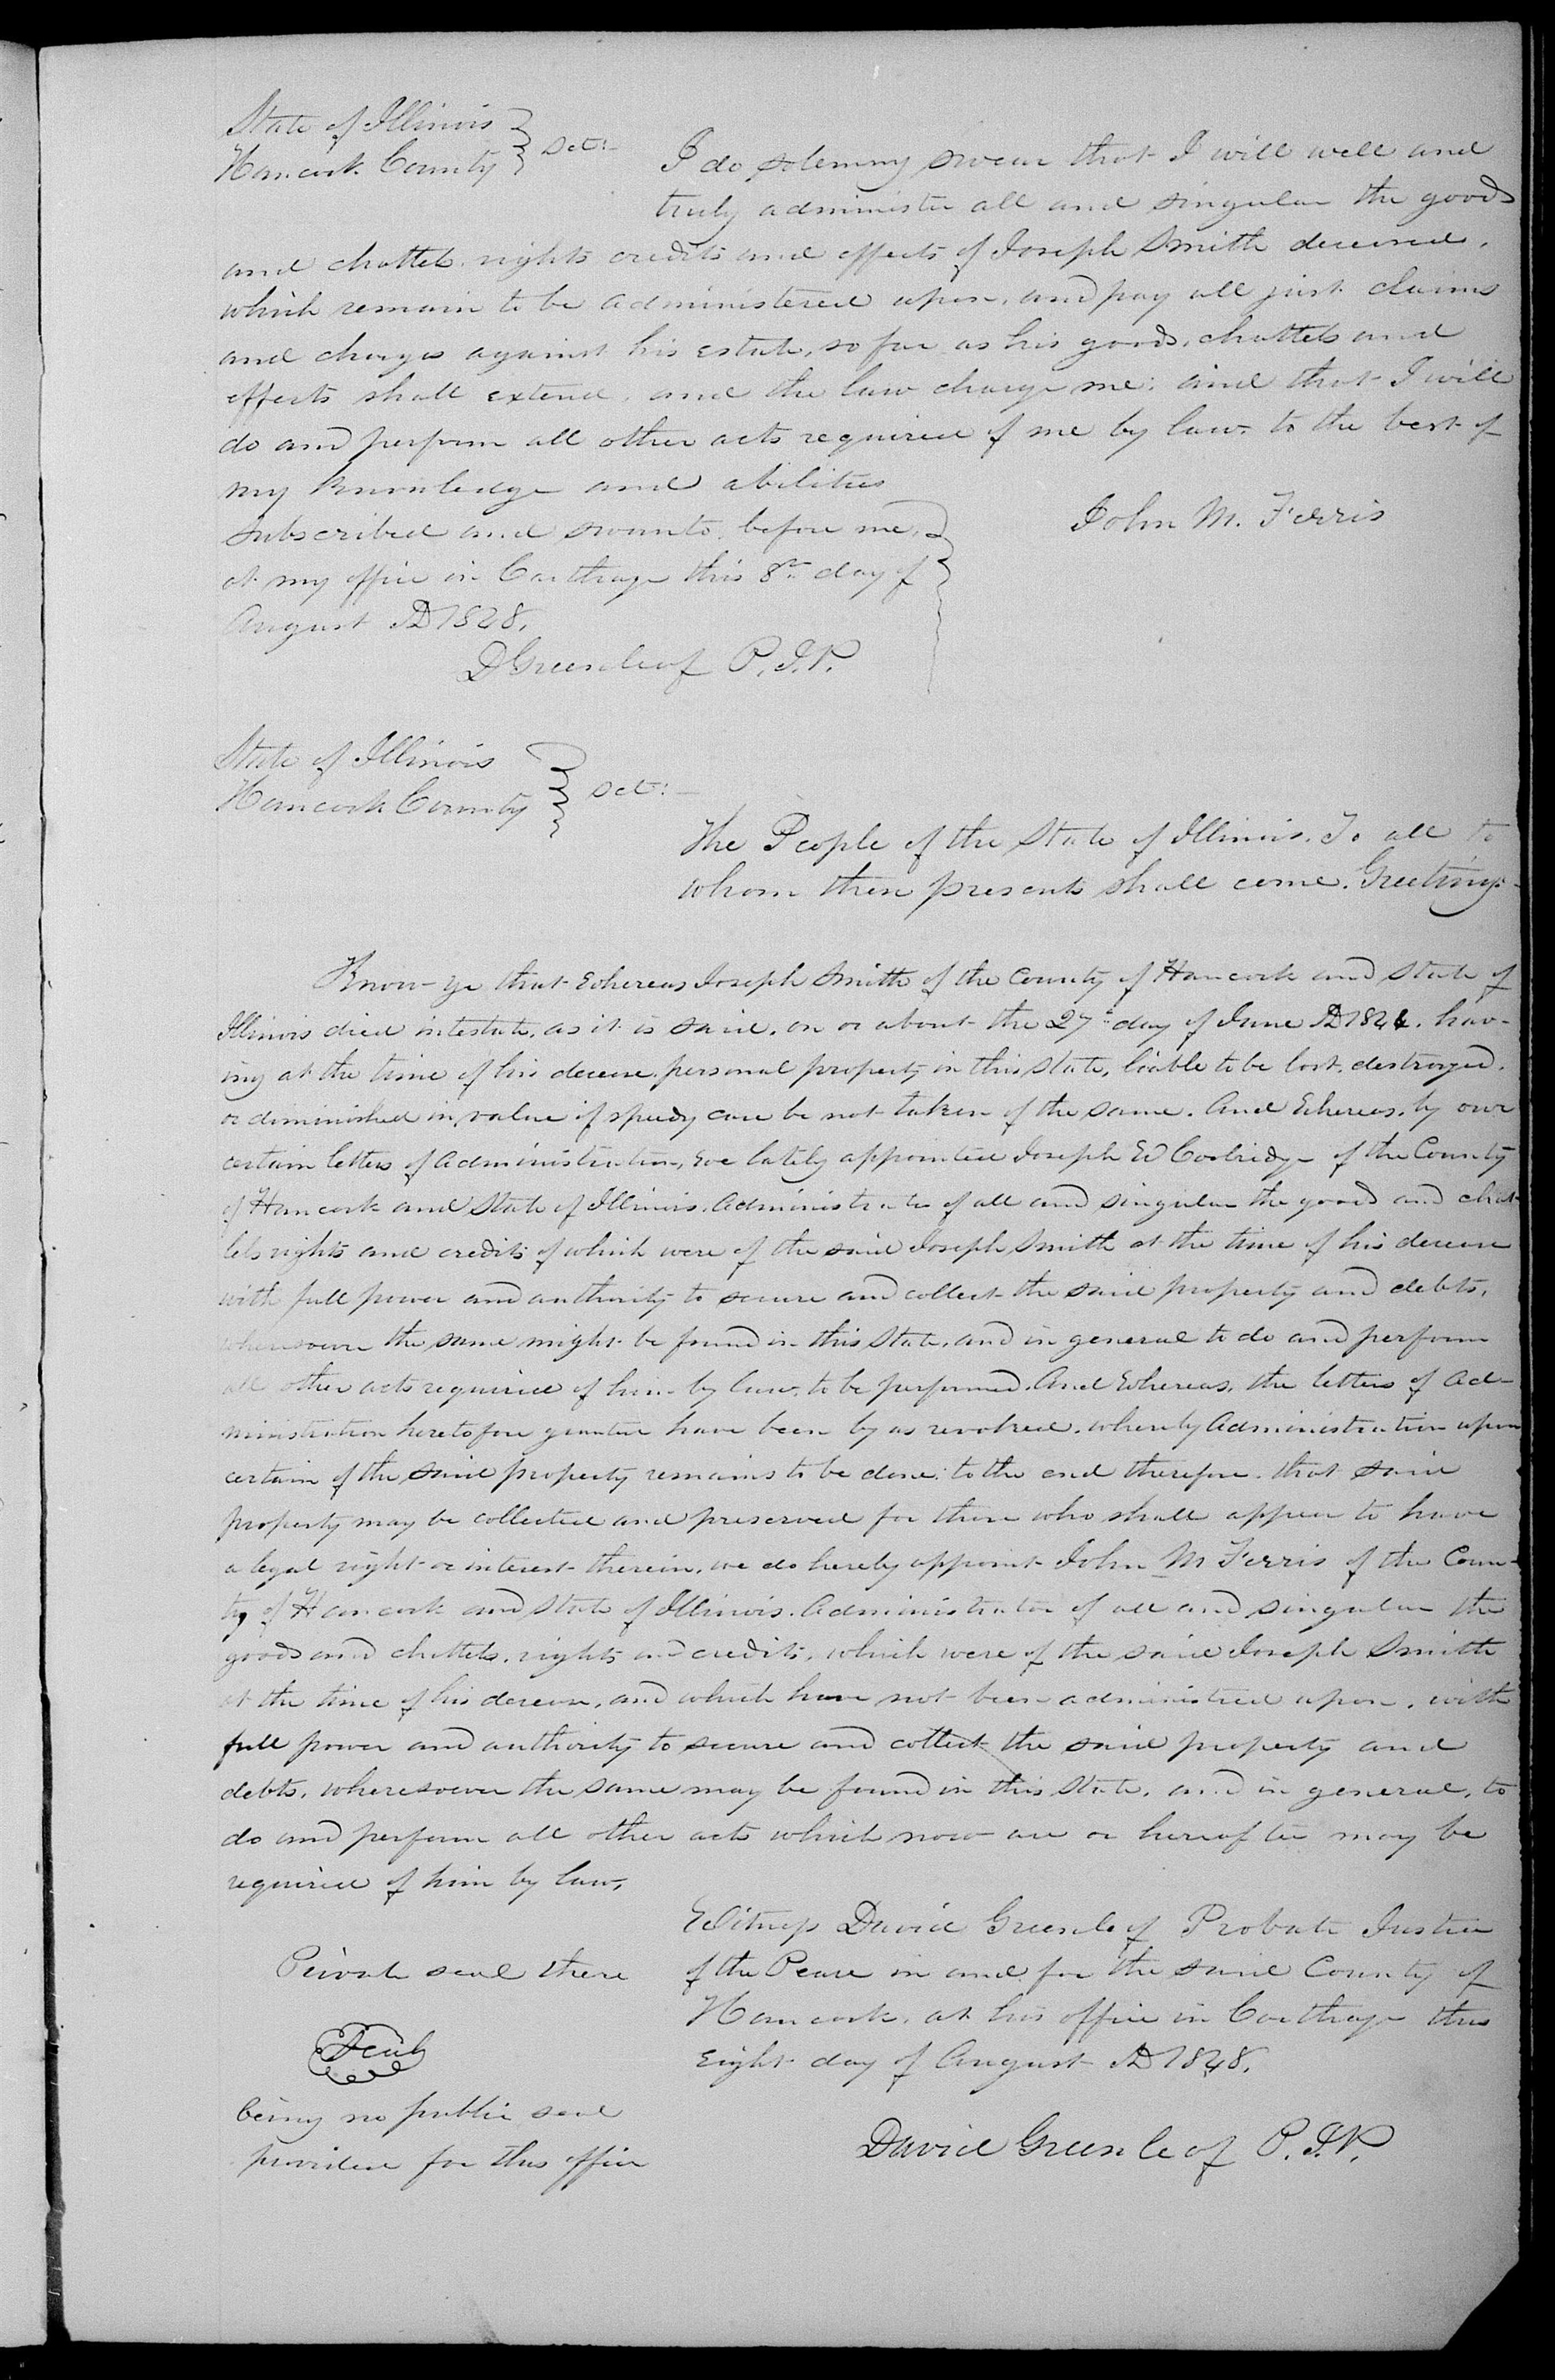 State of Illinois
Hancock County } Sct:-
I do solemny swear that I will well and
truly administer all and singular the goods
and chattels rights credits and effects of Joseph Smith deceased,
which remain to be administered upon, and pay all just claims
and charges against his estate, so far as his goods, chattels and
effects shall extend, and the law charge me: and that I will
do and perform all other acts required of me by law, to the best of
my Knowledge and abilities
John M. Ferris
Subscribed and swornto before me,
at my office in Carthage this 8th day of
August AD 1848,
D Greenleaf P.J.P.
State of Illinois
Hancock County } Sct:-
The People of the State of Illinois. To all to
whom these presents shall come. Greeting:-
Know ye that Whereas Joseph Smith of the County of Hancock and State of
Illinois died intestate, as it is said, on or about the 27th day of June AD 1844. hav-
ing at the time of his decease personal property in this State, liable to be lost, destroyed,
or diminished in value if speedy care be not taken of the same. And Whereas, by our
certain letters of Administration, We lately appointed Joseph W Coolridge of the County
of Hancock and State of Illinois. Administrator of all and singular the goods and chat-
tels rights and credits of which were of the said Joseph Smith at the time of his decease
with full power and authority to secure and collect the said property and debts,
wheresoever the same might be found in this State, and in general to do and perform
all other acts required of him by law, to be performed. And Whereas, the letters of Ad-
ministration heretofore granted have been by us revoked. whereby Administration upon
certain of the said property remains to be done: to the end therefore that said
property may be collected and preserved for those who shall appear to have
a legal right or interest therein, we do hereby appoint John M Ferris of the Coun-
ty of Hancock and State of Illinois. Administrator of all and singular the
goods and chattels, rights and credits, which were of the said Joseph Smith
at the time of his decease, and which have not been administred upon, with
full power and authority to secure and collect the said property and
debts, wheresoever the same may be found in this State, and in general, to
do and perform all other acts which now are or hereafter may be
required of him by law,
Witness David Greenleaf Probate Justice
of the Peace in and for the said County of
Hancock, at his office in Carthage this
Eight day of August AD 1848.
David Greenleaf P.J.P.
Private seal there
Seal
being no public seal
provided for this office